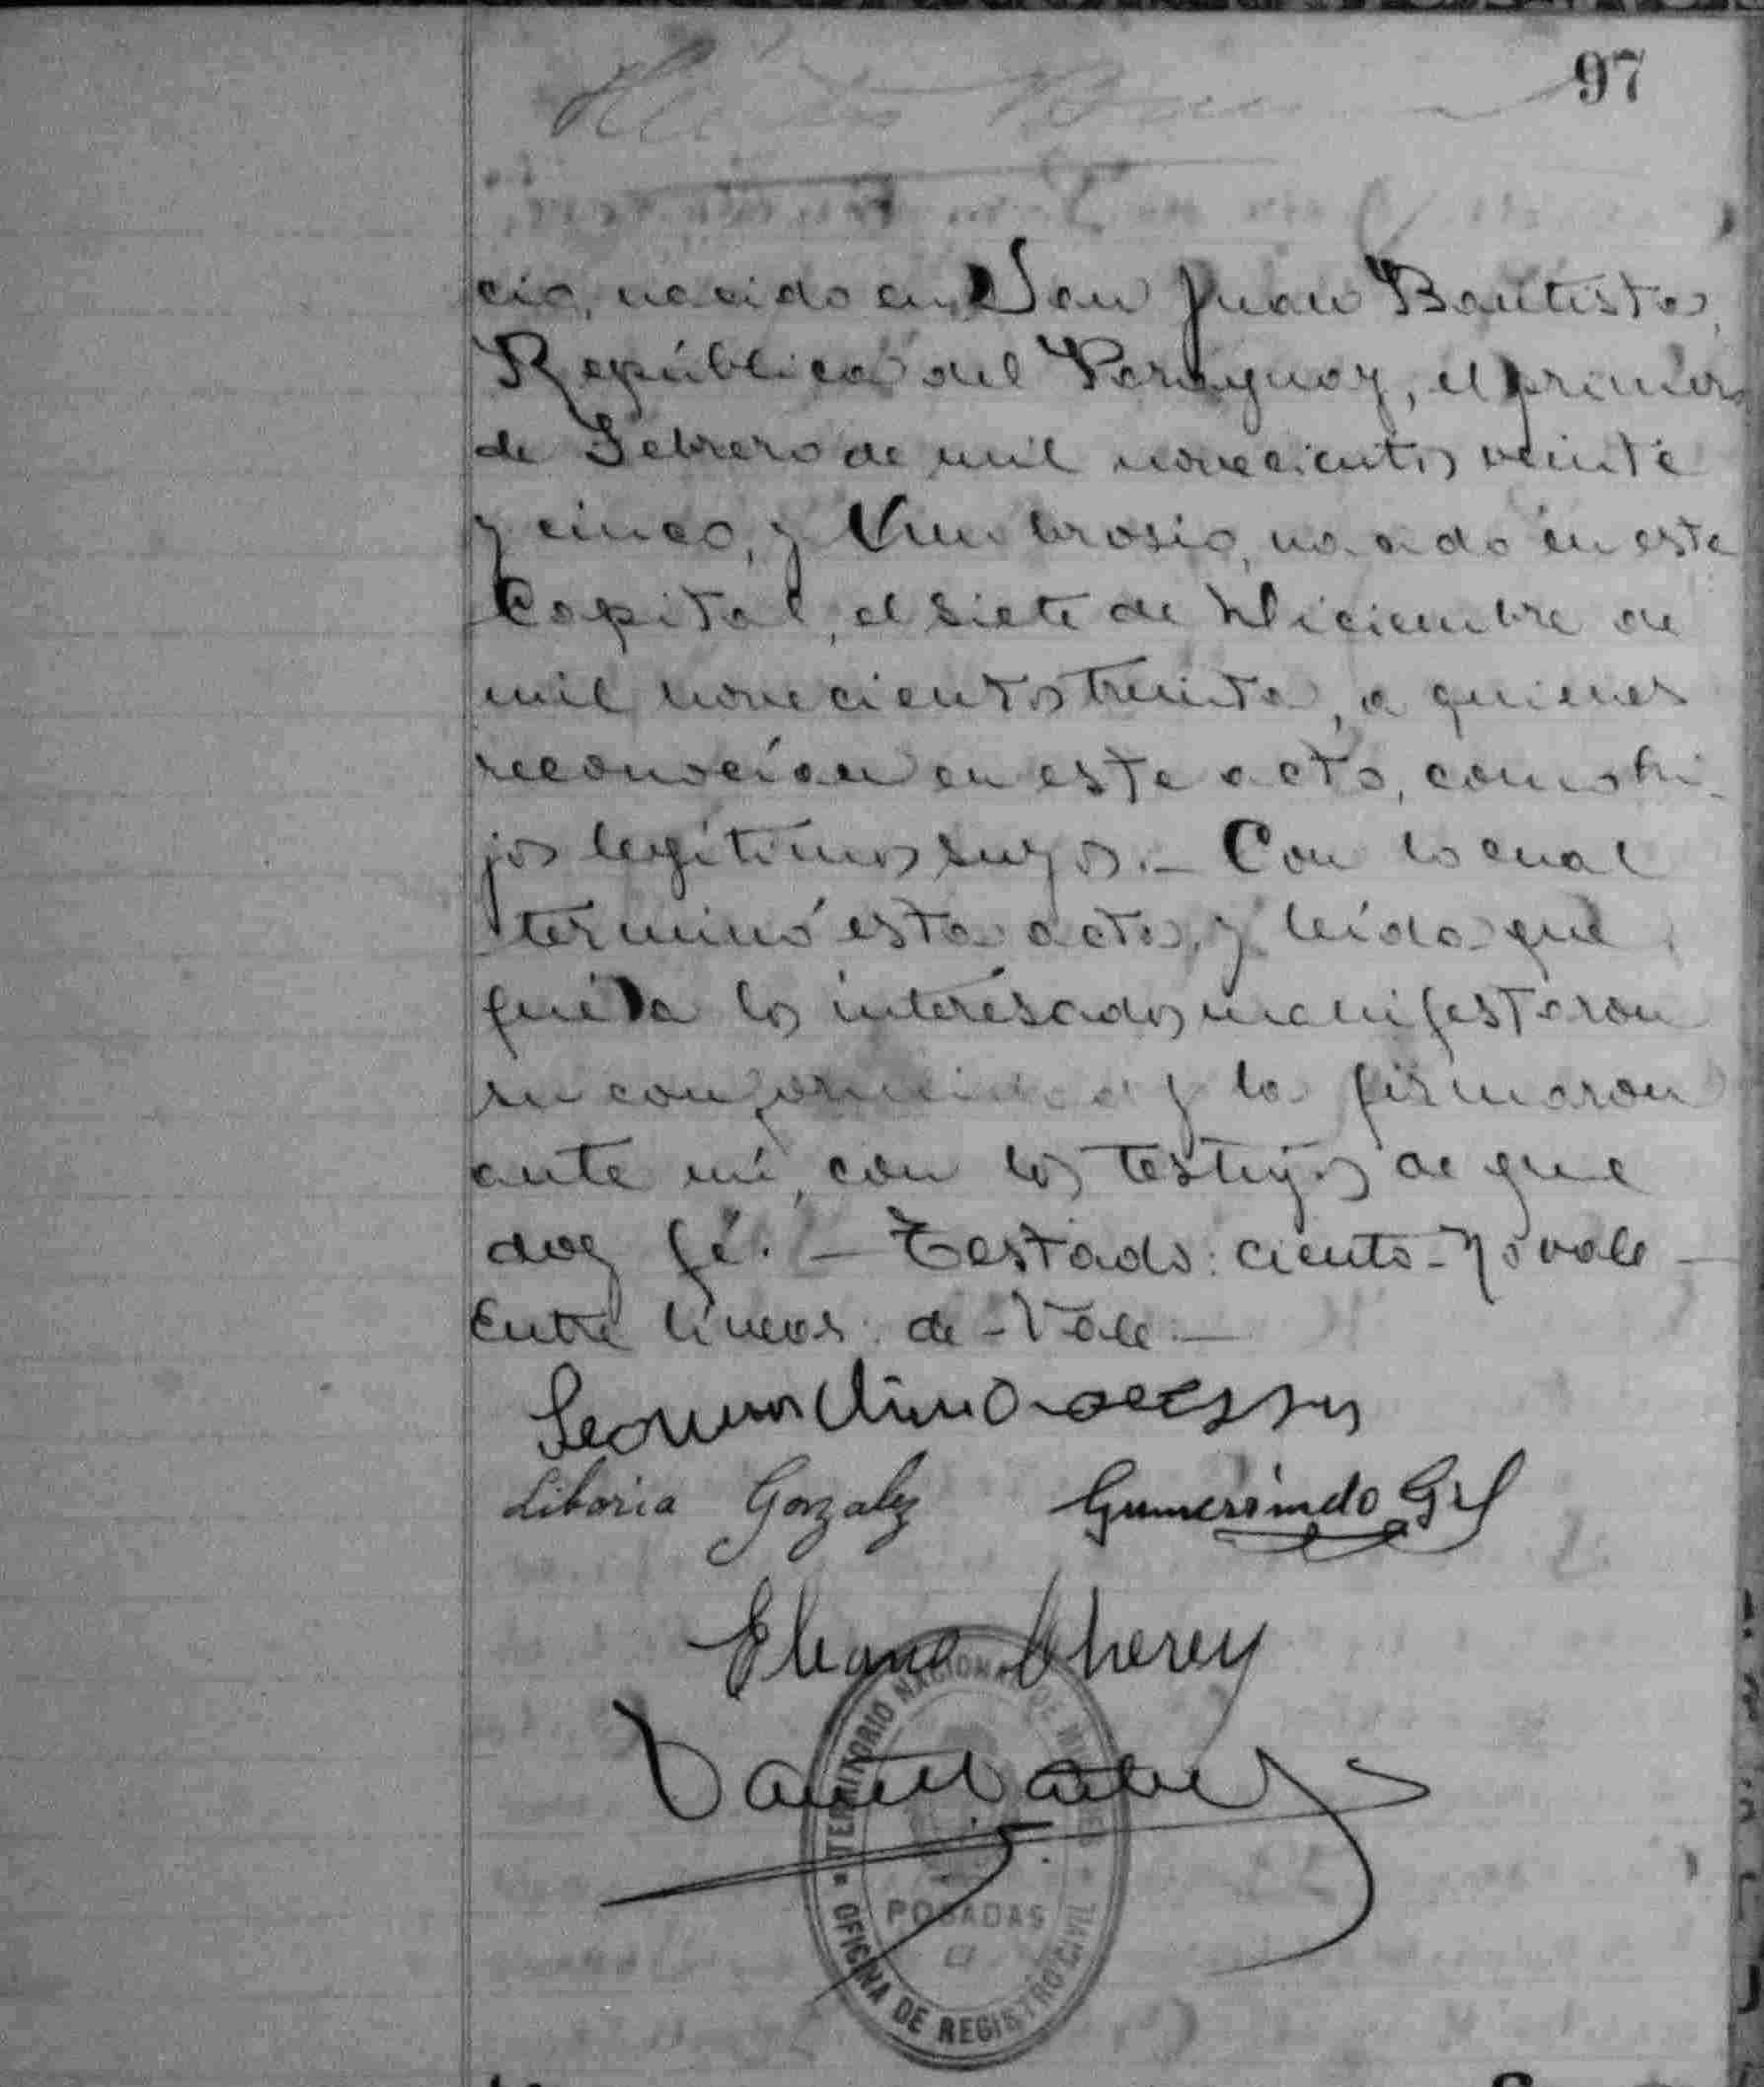 97
cio, nacido en San Juan Bautista,
República del Paraguay, el primero
de Febrero de mil novecientos veinte
y cinco, y Ambrosio, nacido en esta
Capital, el siete de Diciembre de
mil novecientos treinta, a quienes
reconocían en este acto, como hi-
jos legítimos suyos.- Con lo cual
terminó esta acta, y leída que
fué a los interesados manifestaron
su conformidad y la firmaron
ante mí, con los testigos de que
doy fé. - Testado: ciento - No vale -
Entre líneas: de - Vale -
Liboria Gonzalez Gumersindo Gil
TERRITORIO NACIONAL DE MISIONES
POSADAS
OFICINA DE REGISTRO CIVIL